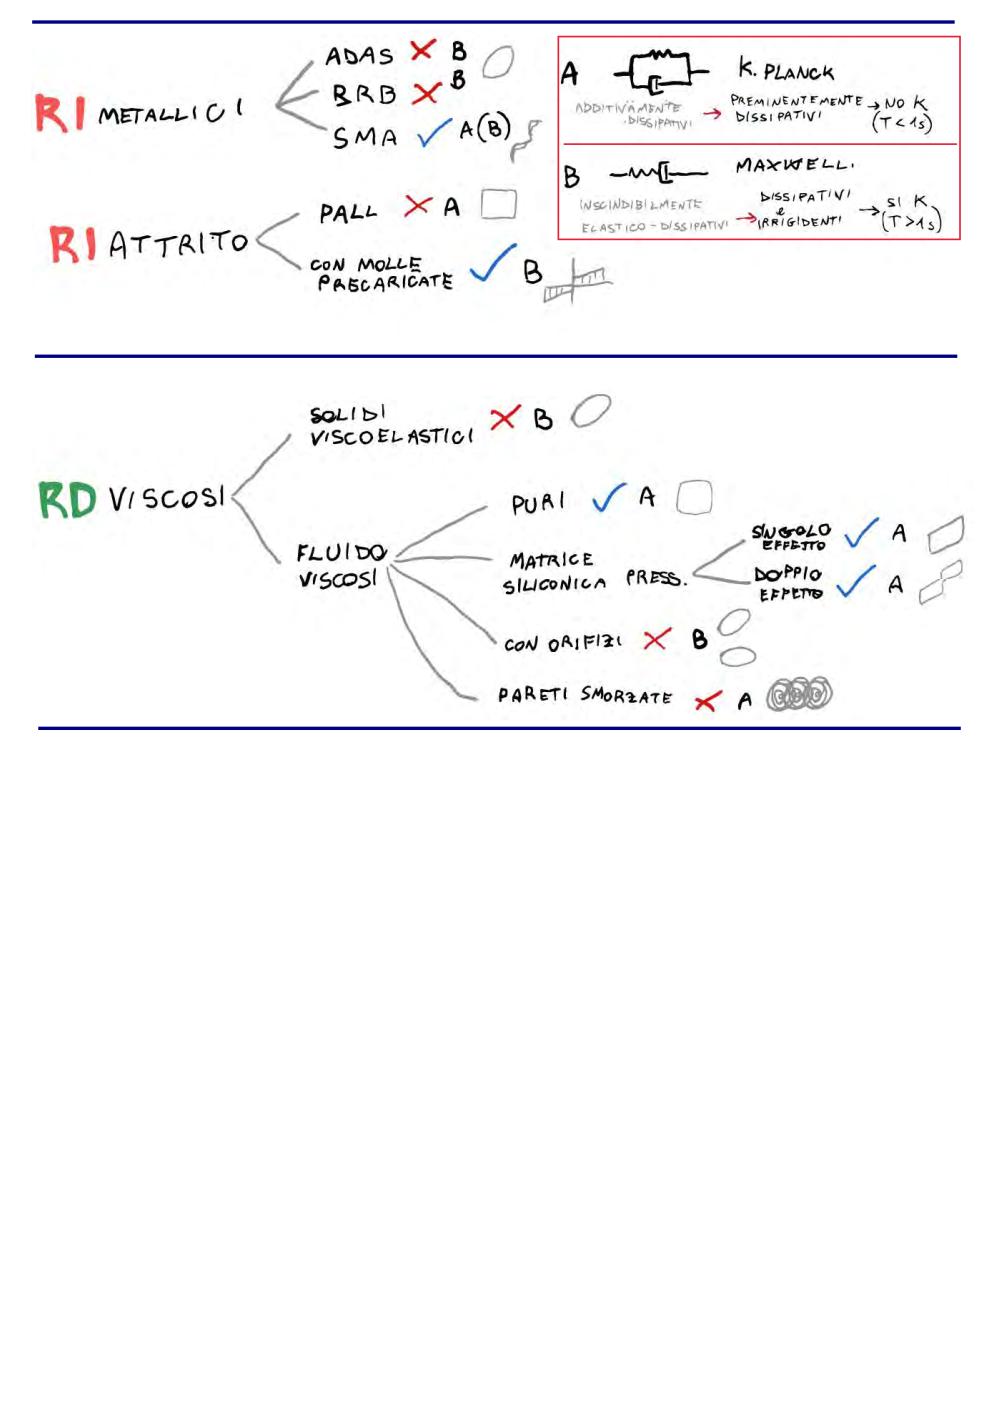 RI METALLICI
ADAS B
BRB B
SMA A(B)
RI ATTRITO
PALL A
CON MOLLE
PRECARICATE B
A K. PLANCK
ADDITIVAMENTE
DISSIPATIVI
PREMINENTEMENTE
DISSIPATIVI
NO K
(T<1s)
B MAXWELL.
INSCINDIBILMENTE
ELASTICO-DISSIPATIVI
DISSIPATIVI
e
IRRIGIDENTI
SI K
(T>1s)
RD VISCOSI
SOLIDI
VISCOELASTICI B
FLUIDO
VISCOSI
PURI A
MATRICE
SILICONICA PRESS.
SINGOLO
EFFETTO A
DOPPIO
EFFETTO A
CON ORIFIZI B
PARETI SMORZATE A